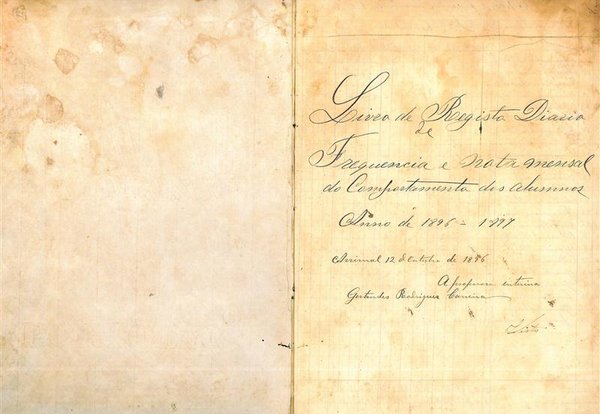 Livro de Registo Diario
de
Frequencia e nota mensal
do Comportamento dos alumnos
Anno de 1896 - 1897
Arrimal 12 d'Outubro de 1896
A professora interina
Gertrudes Rodrigues Carreira